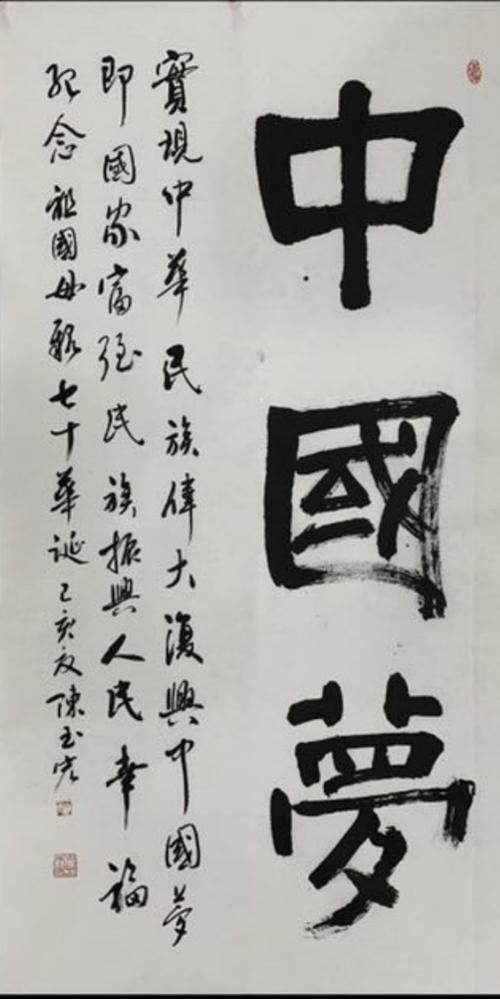 中國夢
實現中華民族偉大復興中國夢
即國家富强民族振興人民幸福
紀念祖國母親七十華誕己亥夏陳玉